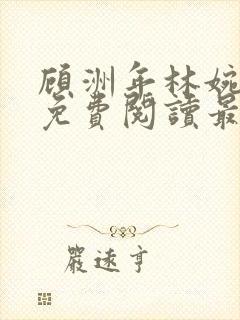 顧洲年林婉
免費閱讀最
嚴遠亨